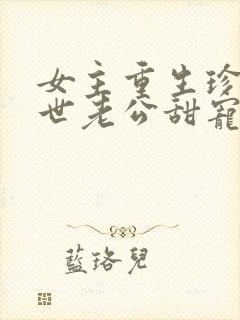 女主重生珍
世老公甜寵
藍珞兒